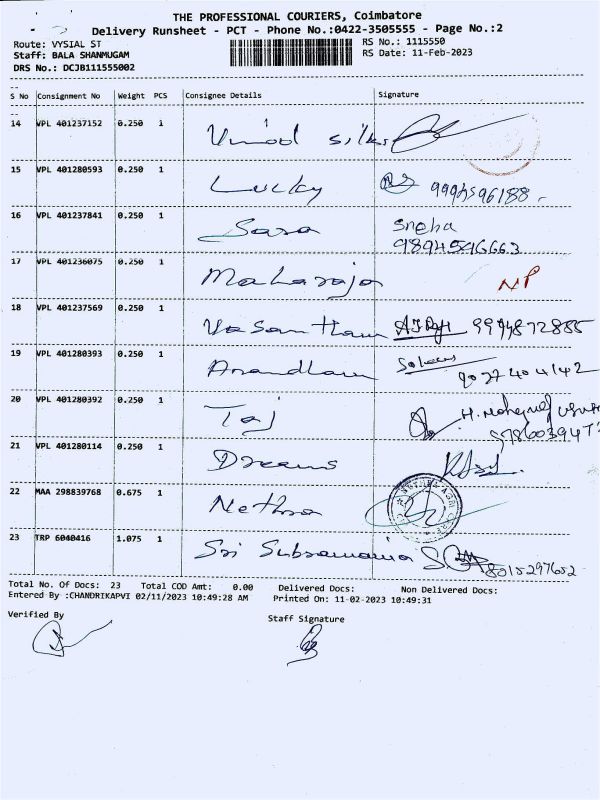 THE PROFESSIONAL COURIERS, Coimbatore
Delivery Runsheet - PCT - Phone No.:0422-3505555 - Page No.:2
Route: VYSIAL ST RS No.: 1115550
Staff: BALA SHANMUGAM RS Date: 11-Feb-2023
DRS No.: DCJB111555002
S No Consignment No Weight PCS Consignee Details Signature
14 VPL 401237152 0.250 1 Vinod silks
15 VPL 401280593 0.250 1 Lucky 9994596188
16 VPL 401237841 0.250 1 Sara Sneha
9894596663
17 VPL 401236075 0.250 1 Maharaja NP
18 VPL 401237569 0.250 1 Vasantham 9994872885
19 VPL 401280393 0.250 1 Anandham
9027404142
20 VPL 401280392 0.250 1 Taj
21 VPL 401280114 0.250 1 Dreams
22 MAA 298839768 0.675 1 Nethra
23 TRP 6040416 1.075 1 Sri Subramania 8015297652
Total No. Of Docs: 23 Total COD Amt: 0.00 Delivered Docs: Non Delivered Docs:
Entered By :CHANDRIKAPVI 02/11/2023 10:49:28 AM Printed On: 11-02-2023 10:49:31
Verified By Staff Signature